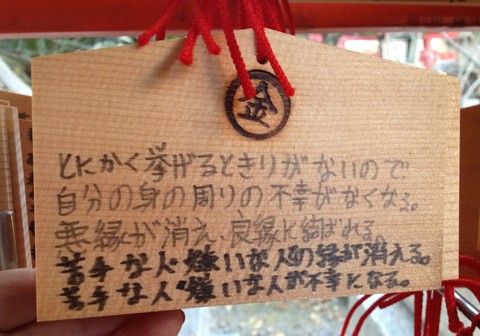 金
とにかく挙げるときりがないので
自分の身の周りの不幸がなくなる。
悪縁が消え、良縁に結ばれる。
苦手な人・嫌いな人の縁が消える。
苦手な人・嫌いな人が不幸になる。